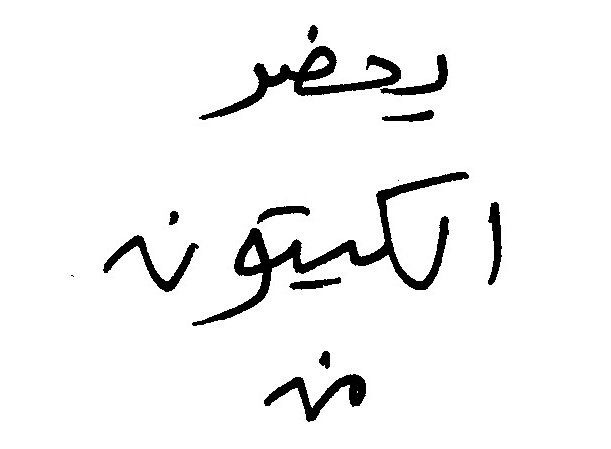 يحضر
الكيتون
من